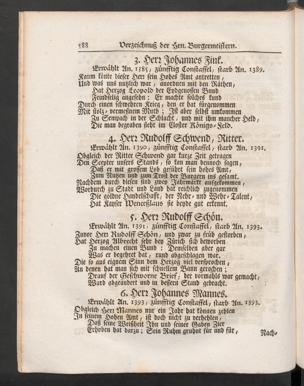 588 Verzeichnuß der Hrn. Burgermeistern.
3. Herr Johannes Fink.
Erwählt An. 1385, zünfftig Constaffel, starb An. 1389.
Kaum könte dieser Herr sein Hohes Amt antretten,
Und was uns nutzlich war, anordnen mit den Räthen,
Hat Herzog Leopold der Eydgenossen Bund
Feindselig angesehn: Er machte solches kund
Durch einen schwehren Krieg, den er hat fürgenommen
Mit stolz-vermeßnem Muth; Ist aber selbst umkommen
Zu Sempach in der Schlacht, und mit ihm mancher Held,
Die man begraben sieht im Closter Königs-Feld.
4. Herr Rudolff Schwend, Ritter.
Erwählt An. 1390, zünfftig Constaffel, starb An. 1391.
Obgleich der Ritter Schwend gar kurze Zeit getragen
Den Scepter unsers Stands, so kan man dennoch sagen,
Daß er mit grossem Lob geführt sein hohes Amt,
Zum Ruhm und zum Trost der Burgern ins gesamt.
Nachdem durch diesen sind zwey Jahrmärkt aufgekommen,
Wordurch zu Stadt und Land hat reichlich zugenommen
Die goldne Handelschafft, der Nehr- und Webe-Talent,
Hat Kayser Wenceslaus sie beyde gut erkennt.
5. Herr Rudolff Schön.
Erwählt An. 1391, zünfftig Constaffel, starb An. 1393.
Zuvor Herr Rudolff Schön, und zwar zu früh gestorben,
Hat Herzog Albrecht sehr bey Zürich sich beworben
Zu machen einen Bund: Demselben aber gar
Was er begehret hat, rund abgeschlagen war.
Die so aus eignem Sinn dem Herzog viel versprochen,
An denen hat man sich mit schnellem Bann gerochen:
Drauf der Geschworne Brief, der vormahls war gemacht,
Ward abgeändert und in bessern Stand gebracht.
6. Herr Johannes Mannes.
Erwählt An. 1393, zünfftig Constaffel, starb An. 1393.
Obgleich Herr Mannes nur ein Jahr hat können zehlen
In seinem Hohen Amt, ist doch nicht zu verhehlen,
Daß seine Weißheit Ihn und seiner Gaben Zier
Erhoben hat darzu: Sein Ruhm gruhnt für und für,
Nach-